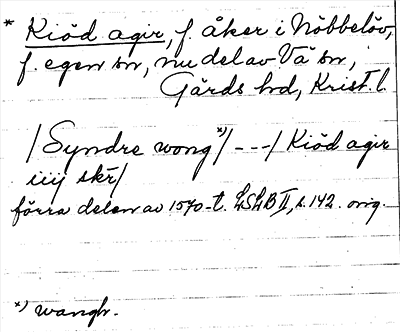 * Kiöd agir, f. åker i Nöbbelöv,
f. egen sn, nu del av Vä sn,
Gärds hd, Krist. l.
/Syndre wong *)/ - - -/ Kiöd agir
iiij skr/
förra delen av 1570-t. LSLB II, s. 142. orig.
*) wangh.